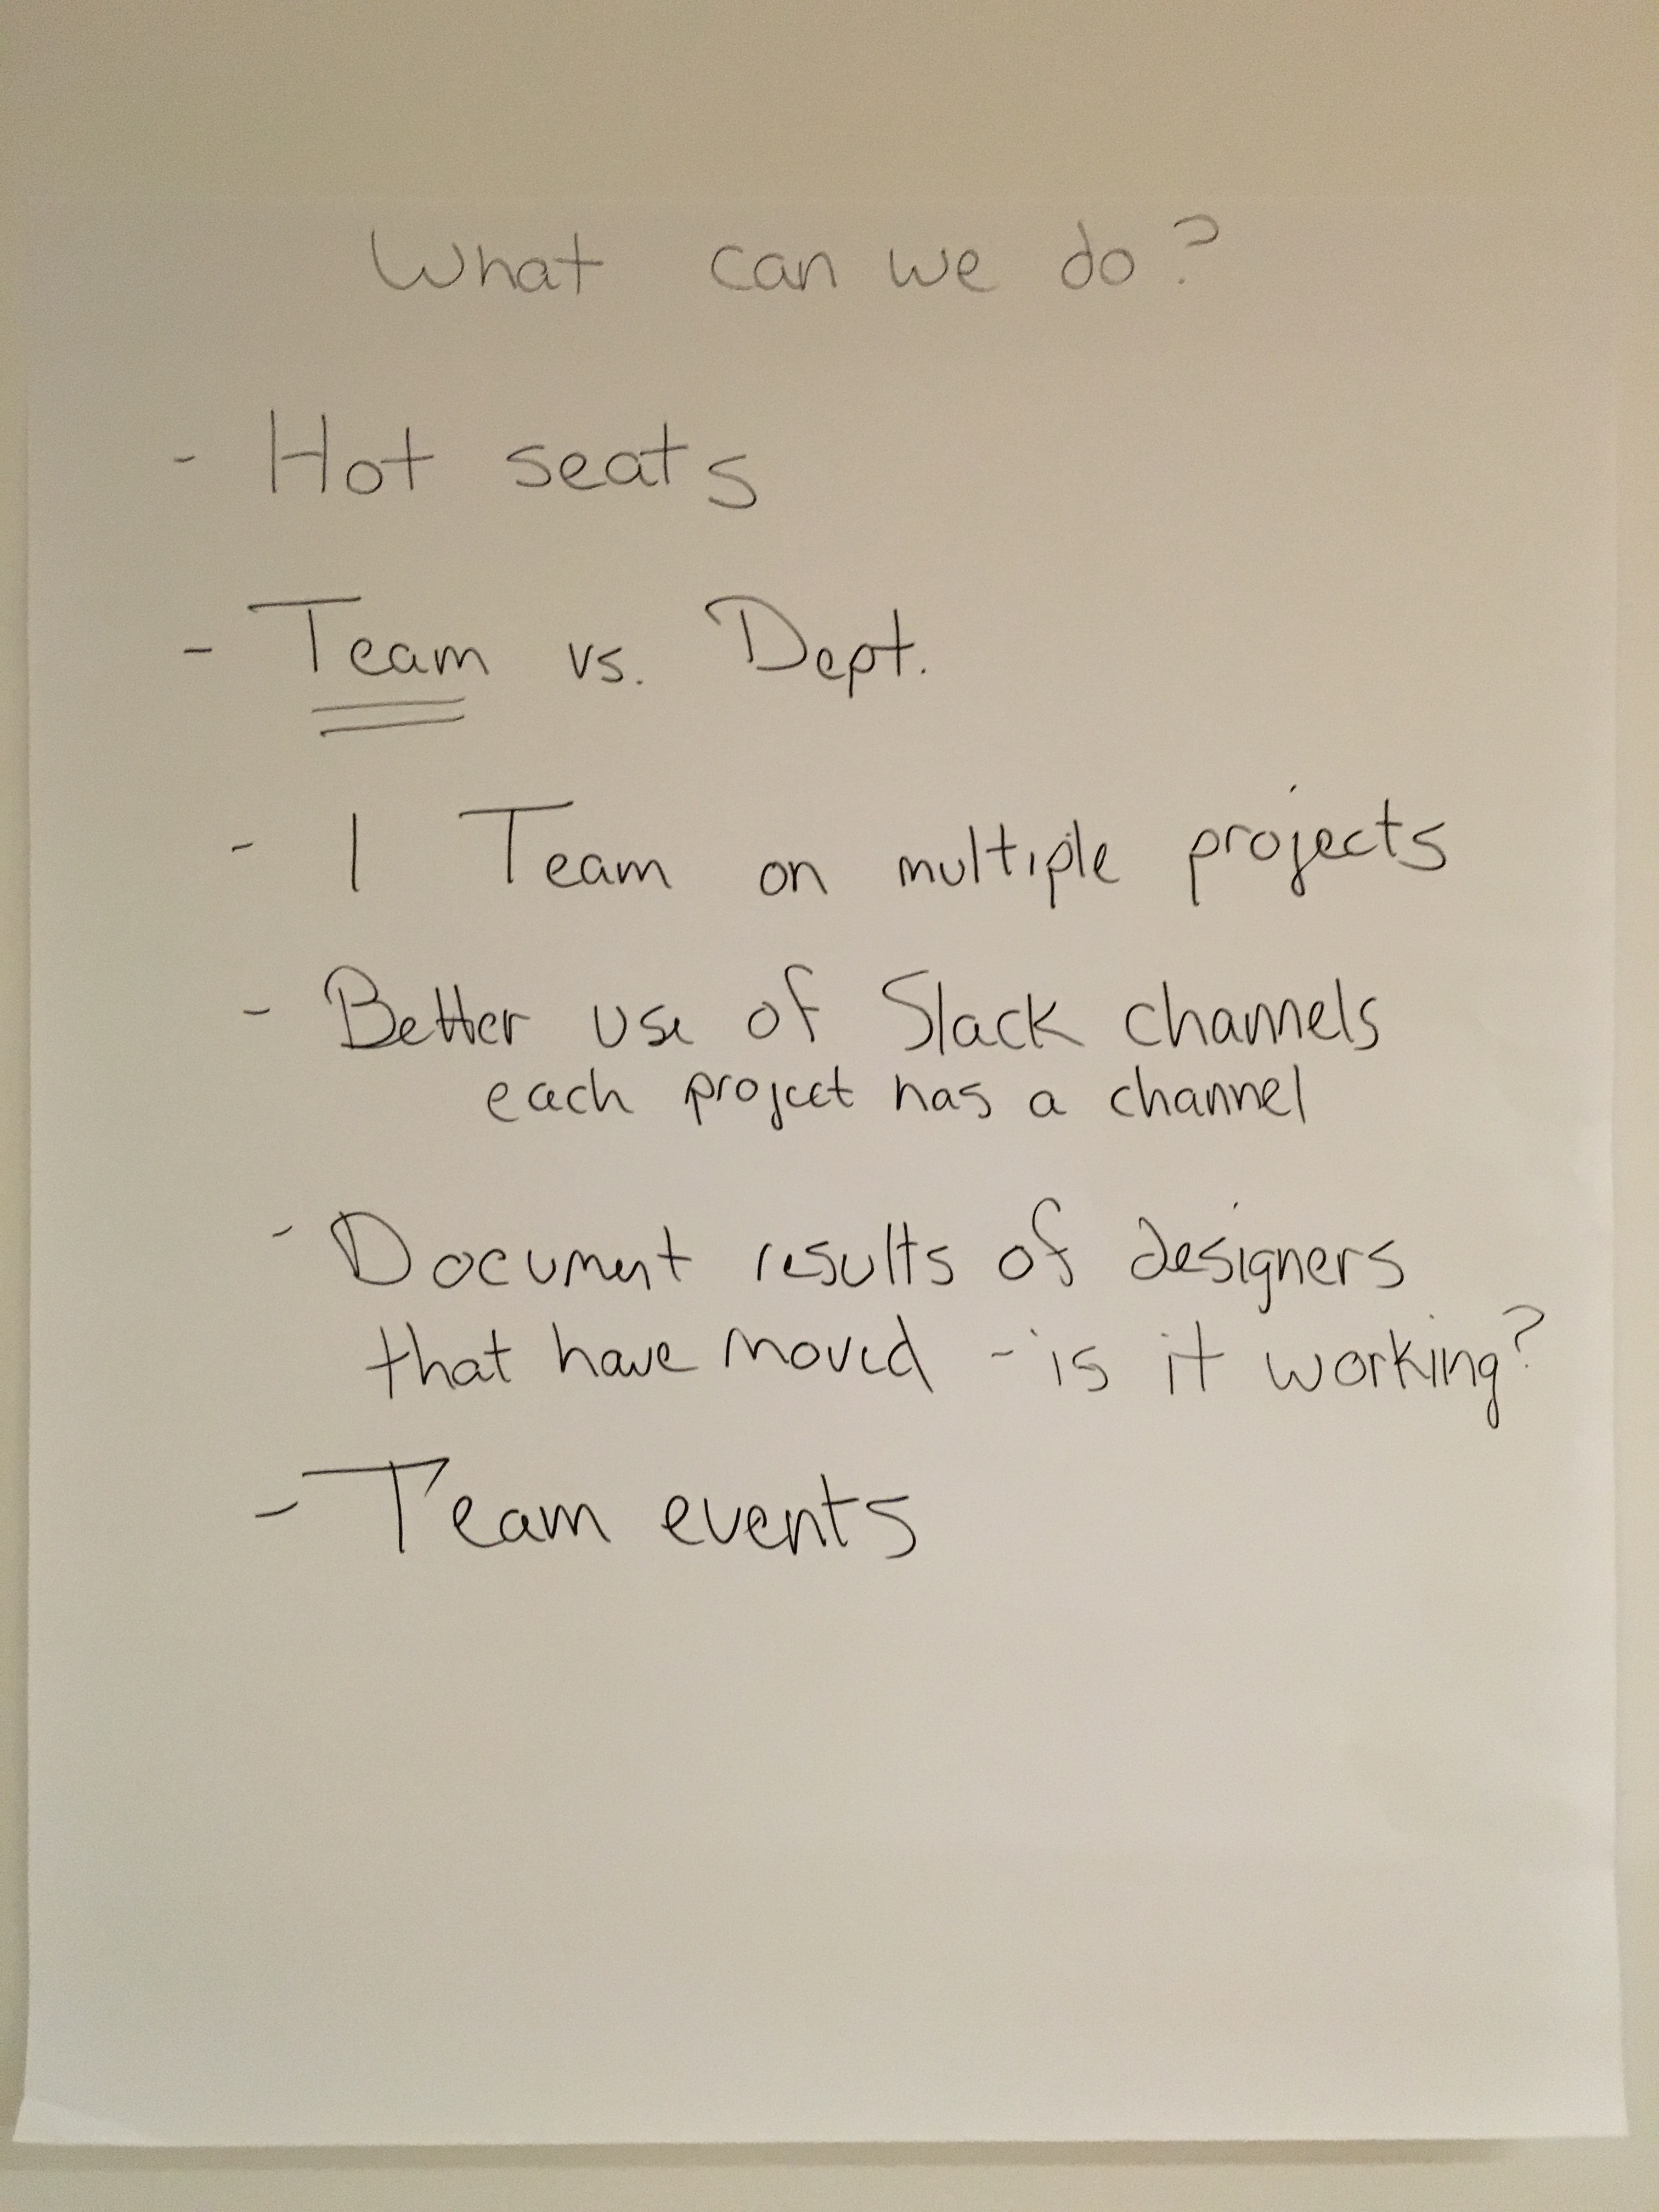 What can we do?
- Hot seats
- Team vs. Dept.
- 1 Team on multiple projects
- Better use of Slack channels
each project has a channel
- Document results of designers
that have moved - is it working?
- Team events